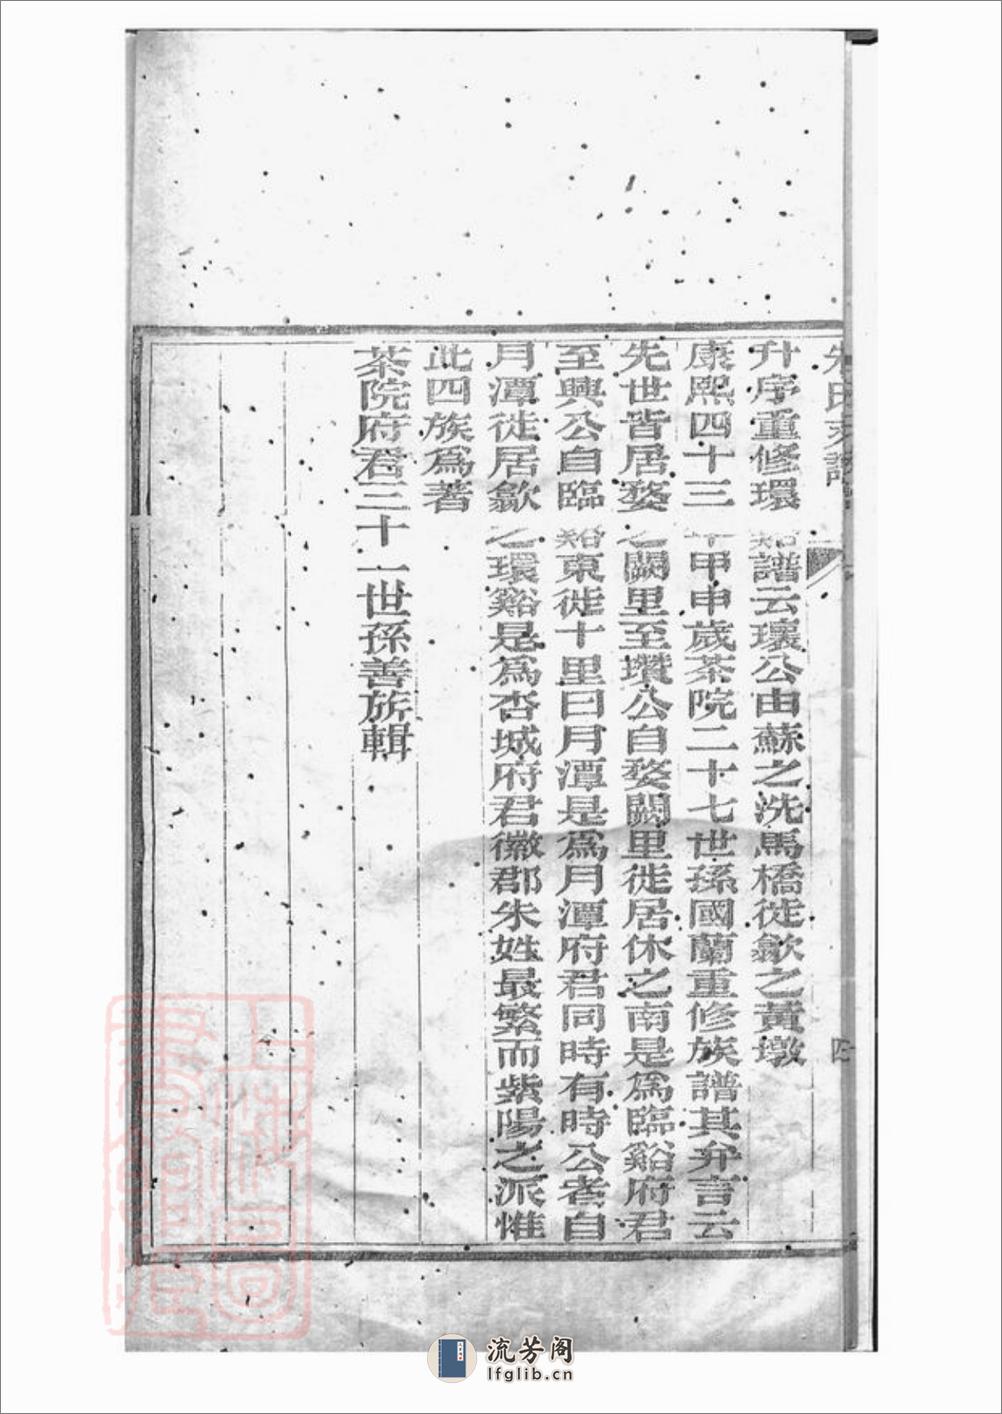 朱氏支譜
四
升序重修環谿譜云瓌公由蘇之洗馬橋徙歙之黃墩
康熙四十三年甲申歲茶院二十七世孫國蘭重修族譜其弁言云
先世皆居婺之闕里至瓚公自婺闕里徙居休之南是爲臨谿府君
至興公自臨谿東徙十里曰月潭是爲月潭府君同時有時公者自
月潭徙居歙之環谿是爲杏城府君徽郡朱姓最繁而紫陽之派惟
此四族爲著
茶院府君三十一世孫善旂輯
流芳阁
lfglib.cn